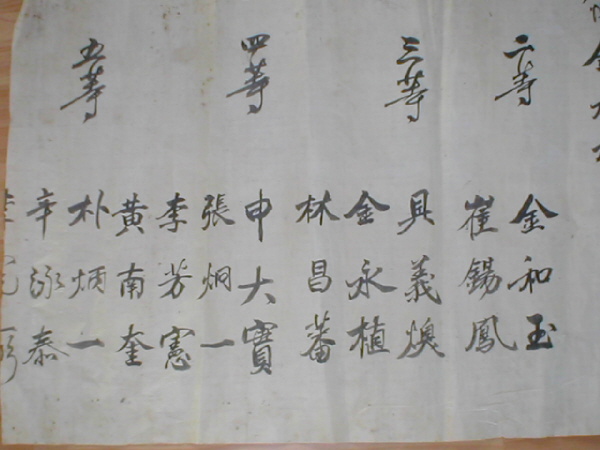 二等
金和玉
崔錫鳳
三等
具義煥
金永植
林昌蕃
四等
申大寶
張炯一
李芳憲
黃南奎
五等
朴炳一
辛泳泰